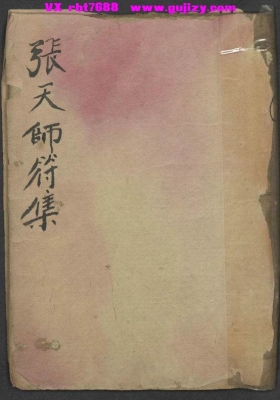 VX cht7688 www.gujizy.com
張天師符集